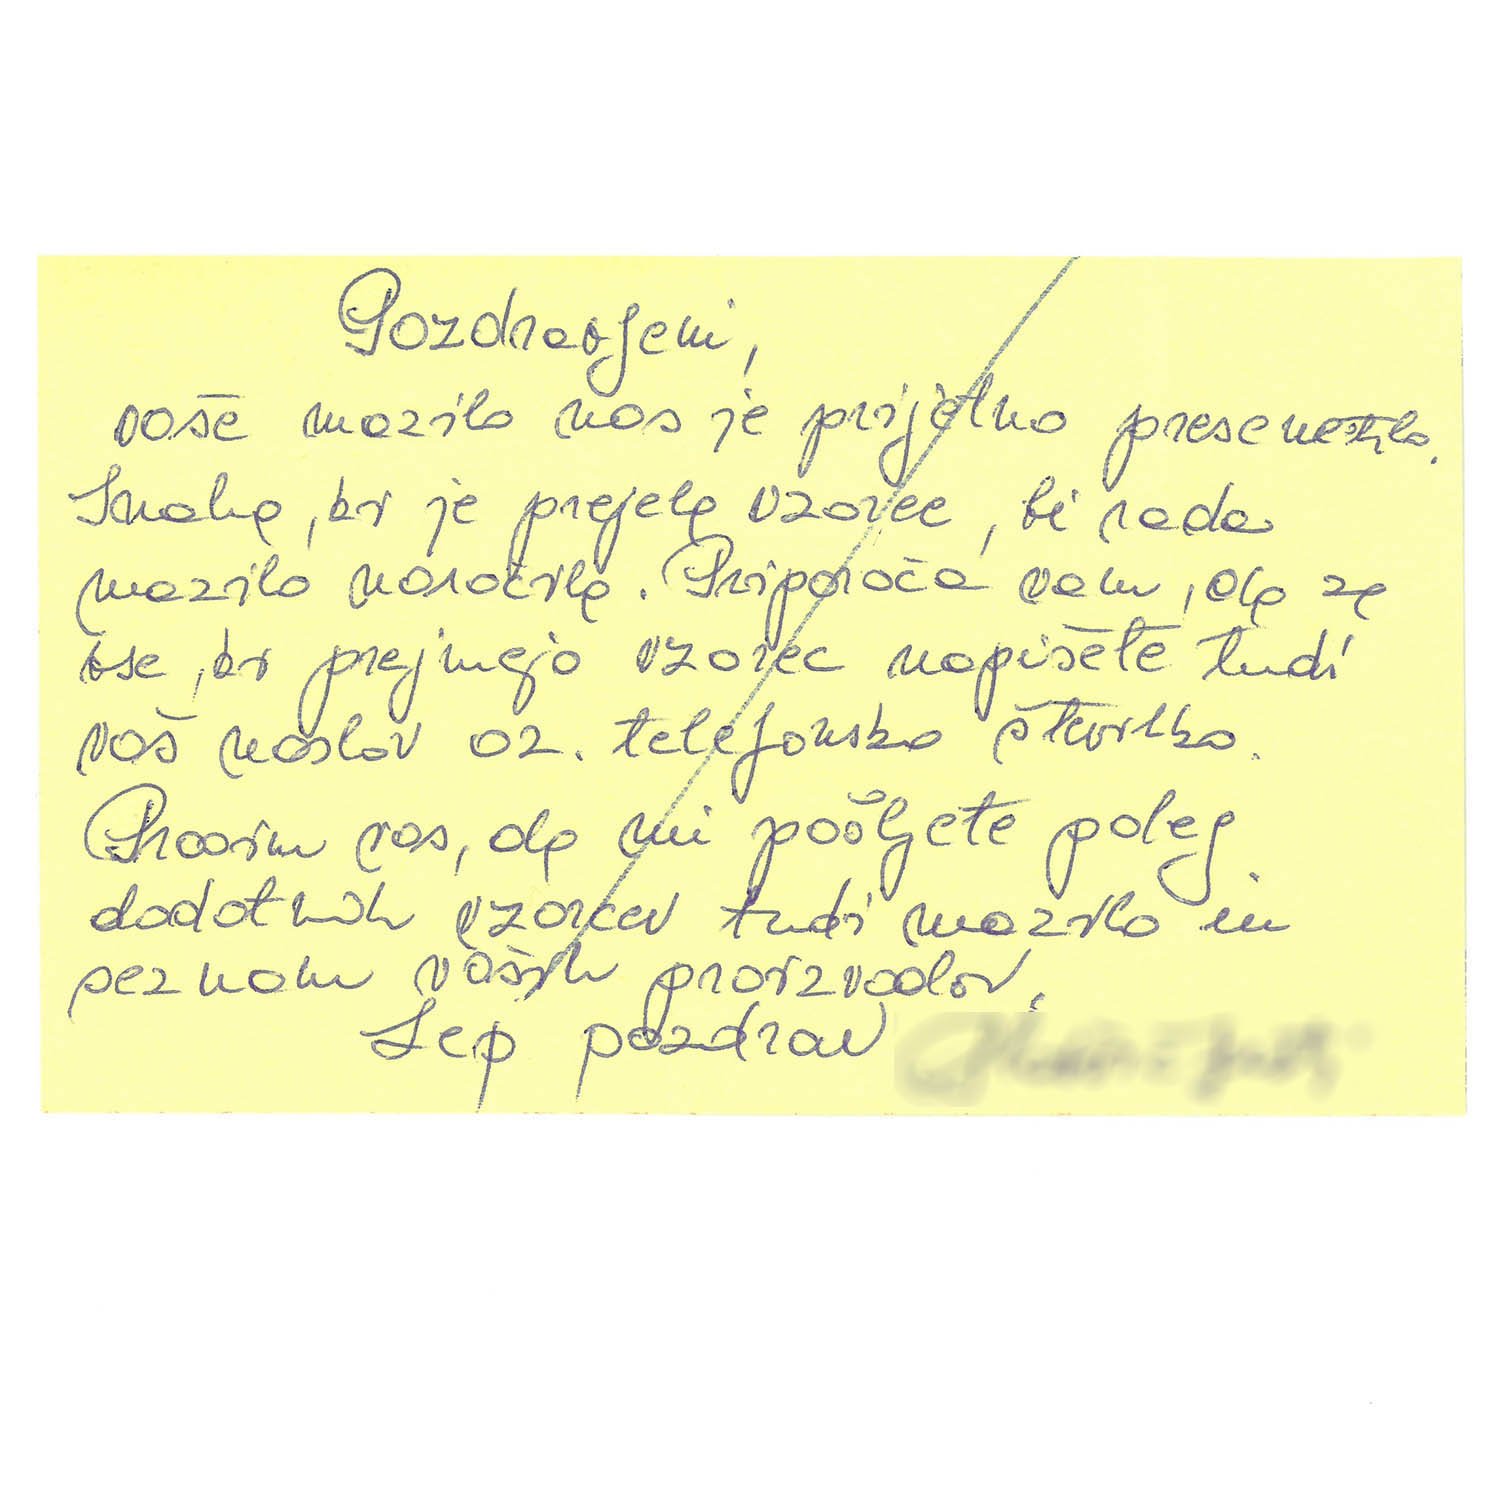 Pozdravljeni,
vaše mazilo nas je prijetno presenetilo.
Snaha, ki je prejela vzorec, bi rada
mazilo naročila. Priporoča vam, da za
vse, ki prejmejo vzorec napišete tudi
vaš naslov oz. telefonsko številko.
Prosim vas, da mi pošljete poleg
dodatnih vzorcev tudi mazilo in
seznam vaših proizvodov.
Lep pozdrav